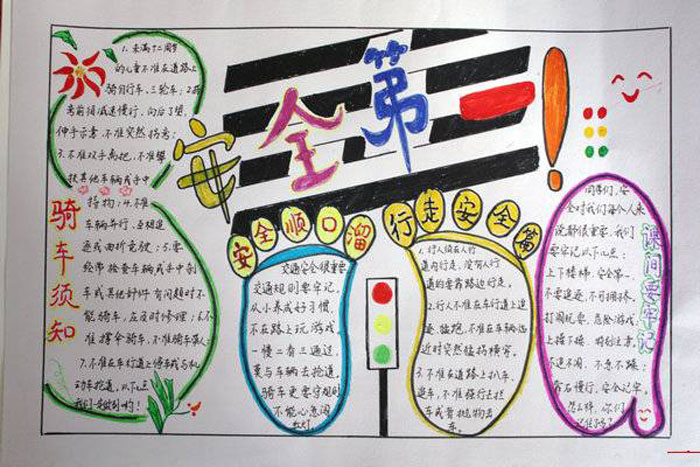 安全第一！
骑车须知
1.未满十二周岁
的儿童不准在道路上
骑自行车、三轮车；2.拐
弯前须减速慢行，向后了望，
伸手示意，不准突然拐弯；
3.不准双手离把，不准攀
扶其他车辆或手中
持物；4.不准
车辆并行、互相追
逐或曲折竞驶；5.要
经常检查车辆或手中刹
车或其他部件有问题时不
能骑车，在及时修理；6.不
准撑伞骑车，不准骑车带人
7.不准在车行道上停车或与机
动车抢道，以下几点
我们一定做到哟！
安全顺口溜
交通安全很重要，
交通规则要牢记，
从小养成好习惯，
不在路上玩游戏，
一慢二看三通过，
莫与车辆去抢道。
骑车更要守规则
不能心急闯
红灯
行走安全篇
1.行人须在人行
道内行走，没有人行
道的要靠路边行走。
2.行人不准在车行道上追
逐、猛跑，不准在车辆临
近时突然猛拐横穿。
3.不准在道路上扒车、
追车，不准强行拦
车或者抛物击
车。
课间要牢记
同学们，安
全对我们每个人来
说都很重要，我们
要牢记以下几点：
上下楼梯，安全第一。
不要追逐，不可拥挤。
打闹玩耍，危险游戏。
上操下操，特别注意。
不追不闹，不急不躁；
靠右慢行，安全记牢。
怎么样，你们
记住了吗？